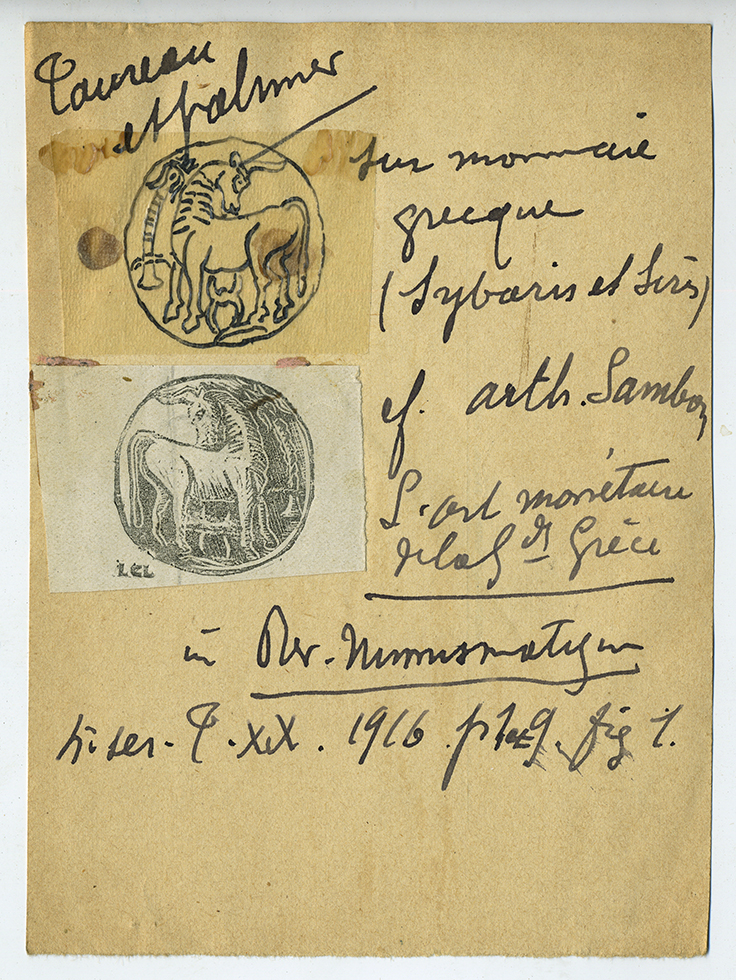 Taureau
et palmier
sur monnaie
grecque
(Sybaris et Siris)
cf. arth. Sambon
L'art monétaire
de la Gde Grèce
LCL
in Rev. Numismatique
ser. T. XIX. 1916 fig 1.